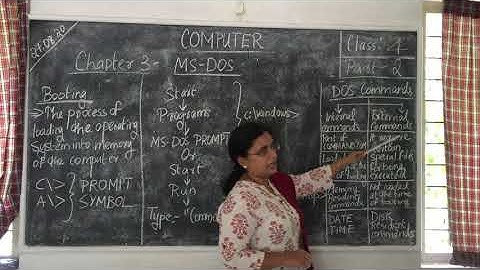 27.08.20
COMPUTER
Class: 4
Chapter 3- MS-DOS
Part-2
Booting
→ The process of
loading the operating
system into memory
of the computer
C:\>
A:\>
PROMPT
SYMBOL
Start
Programs
MS-DOS PROMPT
Or
Start
Run
Type-
C:\windows>
DOS Commands
Internal
commands
Part of
Memory
Resident
Commands
DATE
TIME
External
commands
require
special files
executed
Not loaded
at the time
of booting
Disk
Resident
commands